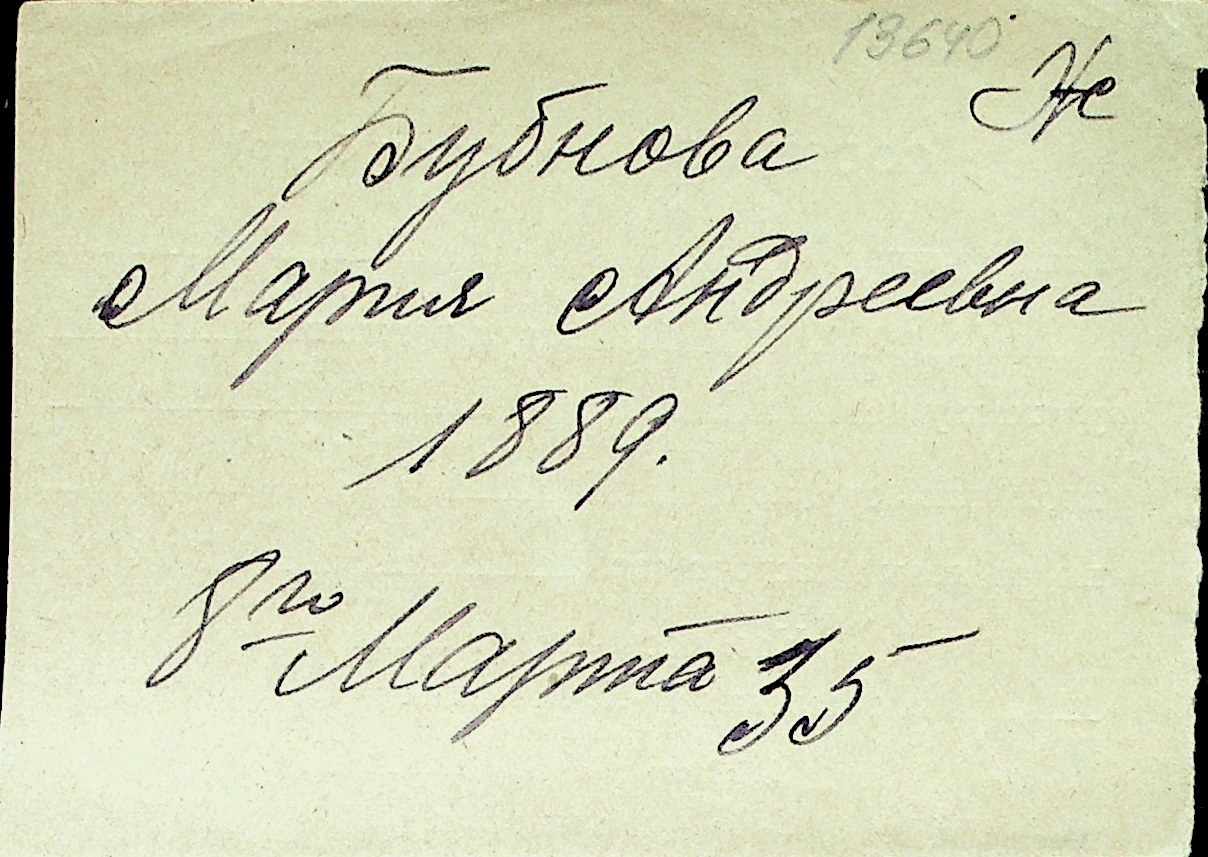 13640
Бубнова
Мария Андреевна
1889.
8го Марта 35